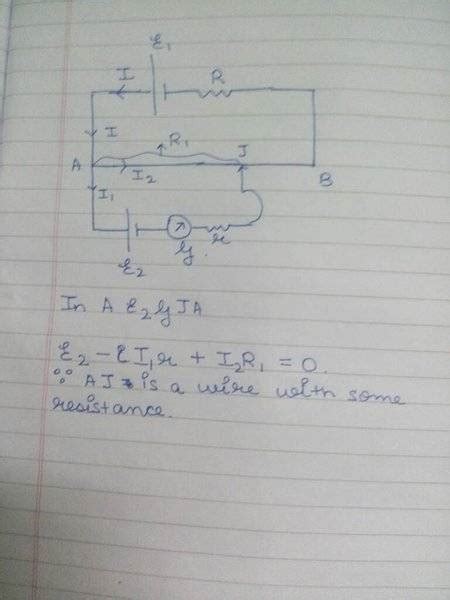 ε₁
I
R
I
R₁
J
A
I₂
B
I₁
G
r
ε₂
In A ε₂ G J A
ε₂ - I₁r + I₂R₁ = 0.
∵ AJ is a wire with some
resistance.